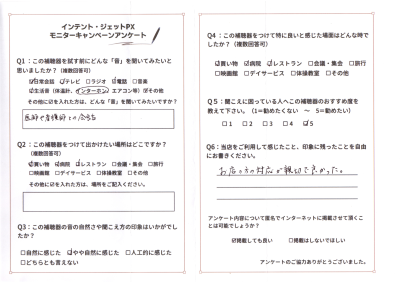 インテント・ジェットPX
モニターキャンペーンアンケート
Q1：この補聴器を試す前にどんな「音」を聞いてみたいと
思いましたか？（複数回答可）
☑日常会話 ☑テレビ □ラジオ ☑電話 □音楽
☑生活音（体温計、インターホン、エアコン等）☑その他
その他に☑を入れた方は、どんな「音」を聞いてみたいですか？
医師や看護師との会話
Q2：この補聴器をつけて出かけたい場所はどこですか？
（複数回答可）
☑買い物 ☑病院 ☑レストラン □会議・集会 □旅行
□映画館 □デイサービス □体操教室 □その他
その他に☑を入れた方は、場所をご記入ください。
Q3：この補聴器の音の自然さや聞こえ方の印象はいかがでし
たか？
□自然に感じた ☑やや自然に感じた □人工的に感じた
□どちらとも言えない
Q4：この補聴器をつけて特に良いと感じた場面はどんな時で
したか？（複数回答可）
☑買い物 ☑病院 ☑レストラン □会議・集会 □旅行
□映画館 □デイサービス □体操教室 □その他
Q5：聞こえに困っている人へこの補聴器のおすすめ度を
教えて下さい。（1＝勧めたくない ～ 5＝勧めたい）
□1 □2 □3 □4 ☑5
Q6：当店をご利用して感じたこと、印象に残ったことを自由
にお書きください。
お店の方の対応が親切で良かった。
アンケート内容について匿名でインターネットに掲載させて頂くこ
とは可能でしょうか？
☑掲載しても良い □掲載はしないでほしい
アンケートのご協力ありがとうございました。